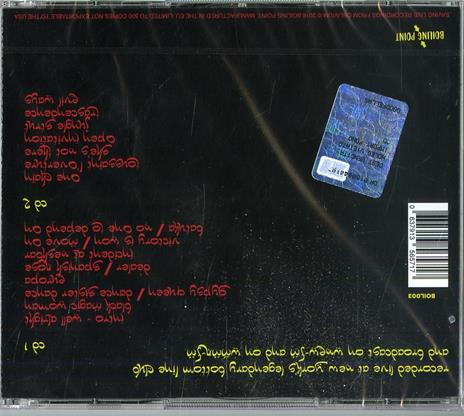 recorded live at new yorks legendary bottom line club
and broadcast on wnew-fm and on
cd 1
intro - well alright
black magic woman
gypsy queen / dance sister dance
europa
dealer / spanish rose
incident at neshabur
victory is won / move on
batuka / no one to depend on
cd 2
one chain
toussaint l'overture
she's not there
open invitation
jungle strut
trascendence
evil ways
BOIL003
0 637913 565717
BOILING POINT
SAVING LIVE RECORDINGS FROM OBLIVION © 2016 BOILING POINT. MANUFACTURED IN THE EU. LIMITED TO 500 COPIES. NOT EXPORTABLE TO THE USA